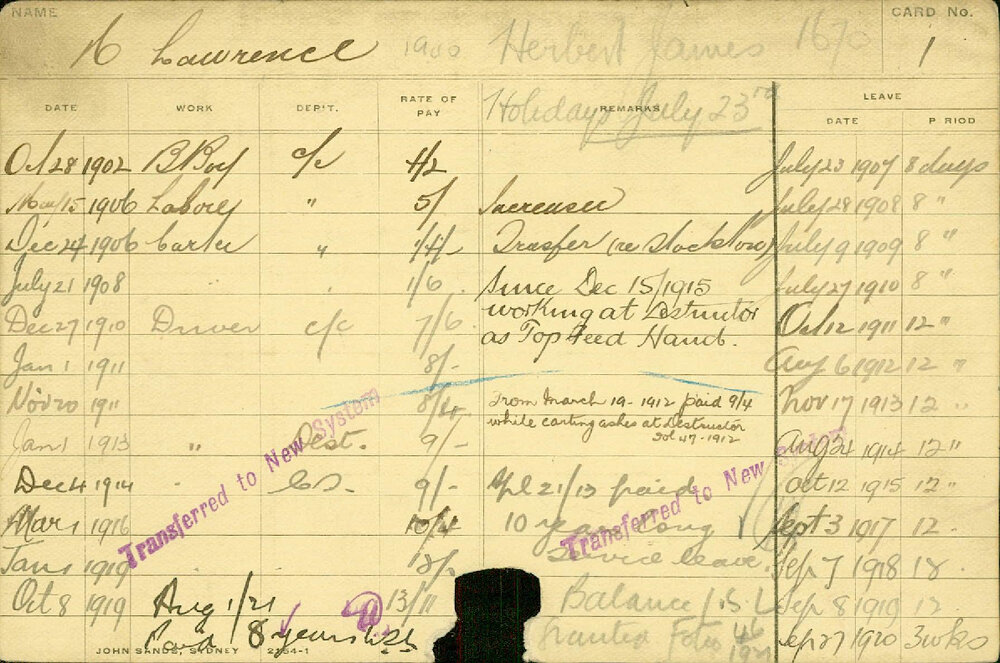 NAME CARD No.
H Lawrence 1900 Herbert James 1670 1
DATE WORK DEP'T. RATE OF PAY REMARKS LEAVE
Holidays July 23rd
DATE PERIOD
Oct 28 1902 B Boy c/c July 23 1907 8 days
May 15 1906 " 5/ Increased July 28 1908 8 "
Dec 24 1906 Carter " Trasfer (re Stockton) July 9 1909 8 "
July 21 1908 1/6 Since Dec 15/1915 July 27 1910 8 "
working at Destructor
Dec 27 1910 Driver c/c 7/6 as Top Feed Hand. Oct 12 1911 12 "
Jan 1 1911 8/- Aug 6 1912 12 "
Nov 20 1911 8/4 From March 19-1912 paid 9/4 Nov 17 1913 12 "
while carting ashes at Destructor
Jan 1 1913 " Dest. 9/- Aug 24 1914 12 "
Dec 4 1914 9/- Apl 21/13 paid Oct 12 1915 12 "
Mar 1 1916 10/4 10 years long Sept 3 1917 12
Jan 1 1919 Service leave. Sep 7 1918
Oct 8 1919 Aug 1/21 13/11 Balance Sep 8 1919 12
8 years Granted Sep 27 1920 3 wks
Transferred to New System
Transferred to New System
JOHN SANDS, SYDNEY 2164-1